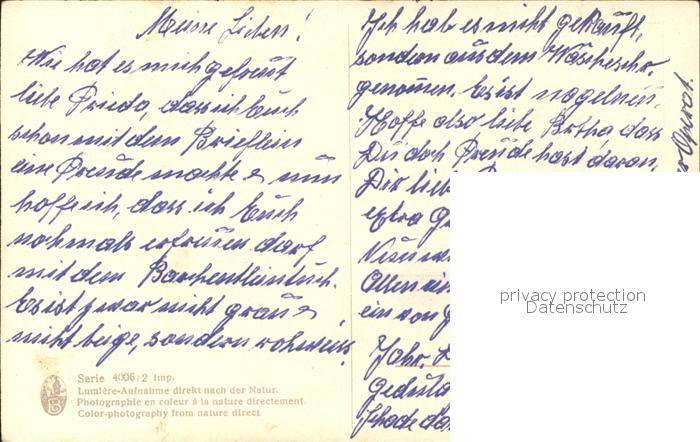 Meine Lieben!
Wie hat es mich gefreut
liebe Frieda, dass ich Euch
schon mit dem Brieflein
eine Freude machte & nun
hoffe ich, dass ich Euch
nochmals erfreuen darf
mit dem Barchentleintuch.
Es ist zwar nicht grau &
nicht beige, sondern rohweiss.
Serie 4006/2 Imp.
Lumière-Aufnahme direkt nach der Natur.
Photographie en coleur à la nature directement.
Color-photography from nature direct.
Ich hab es nicht gekauft,
sondern aus dem Wäscheschr.
genommen. Es ist nagelneu.
Hoffe also liebe Bertha, dass
Du doch Freude hast daran,
Dir lieb
extra
Allen ein
ein von
Jahr.
Geduld
Schade da
privacy protection
Datenschutz